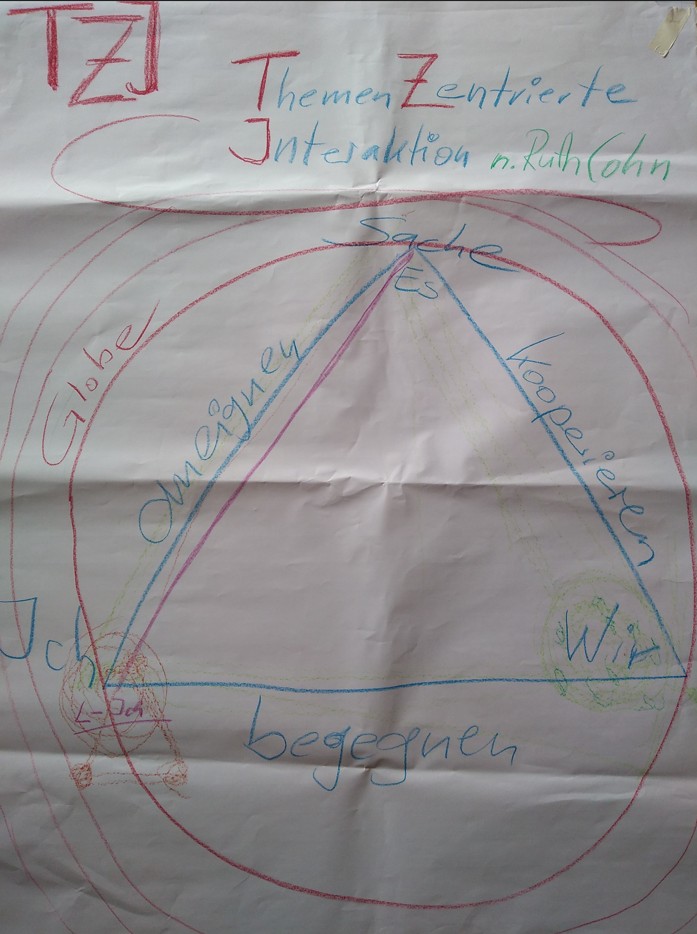 TZJ
ThemenZentrierte
Interaktion n. Ruth Cohn
Sache
Es
Globe
aneignen
kooperieren
Ich
Wir
L-Ich
begegnen